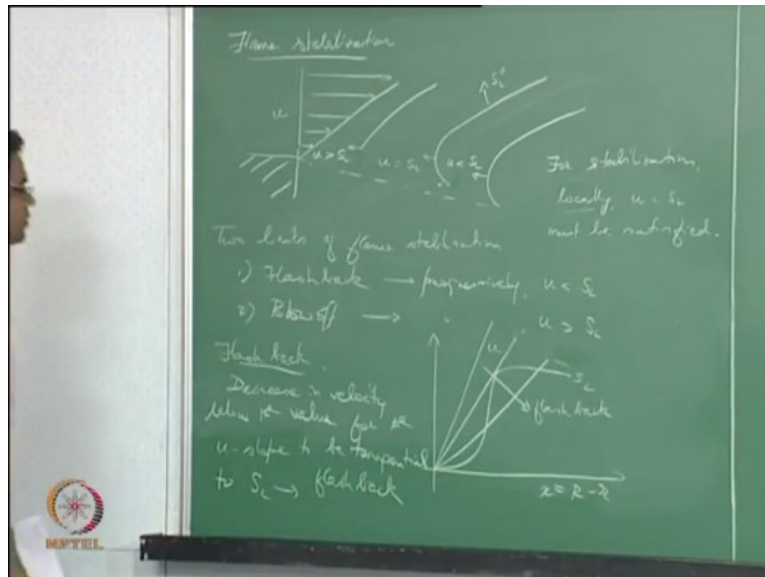 Flame stabilization
u
S_L°
u > S_L
u = S_L
u < S_L
For stabilization,
locally, u = S_L
must be satisfied.
Two limits of flame stabilization
1) Flashback → progressively, u < S_L
2) Blowoff → " , u > S_L
Flash back
Decrease in velocity
below the value for the
u-slope to be tangential
to S_L → flashback
u
S_L
flashback
x = R - r
NPTEL